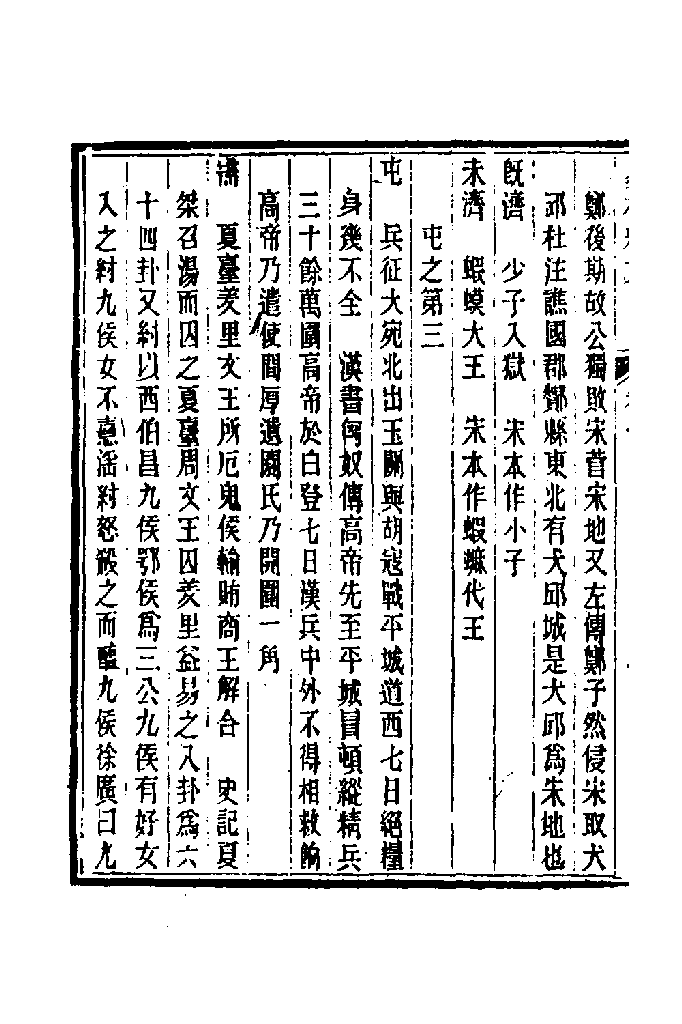 鄭後期故公獨敗宋菅宋地又左傳鄭子然侵宋取犬
邱杜注譙國郡酇縣東北有犬邱城是大邱爲宋地也
旣濟　少子入獄　宋本作小子
未濟　蝦蟆大王　宋本作蝦蟆代王
屯之第三
屯　兵征大宛北出玉關與胡寇戰平城道西七日絕糧
身幾不全　漢書匈奴傳高帝先至平城冒頓縱精兵
三十餘萬圍高帝於白登七日漢兵中外不得相救餉
高帝乃遣使間厚遺閼氏乃開圍一角
需　夏臺羑里文王所厄鬼侯輸賄商王解合　史記夏
桀召湯而囚之夏臺周文王囚羑里益易之八卦爲六
十四卦又紂以西伯昌九侯鄂侯爲三公九侯有好女
入之紂九侯女不憙淫紂怒殺之而醢九侯徐廣曰九